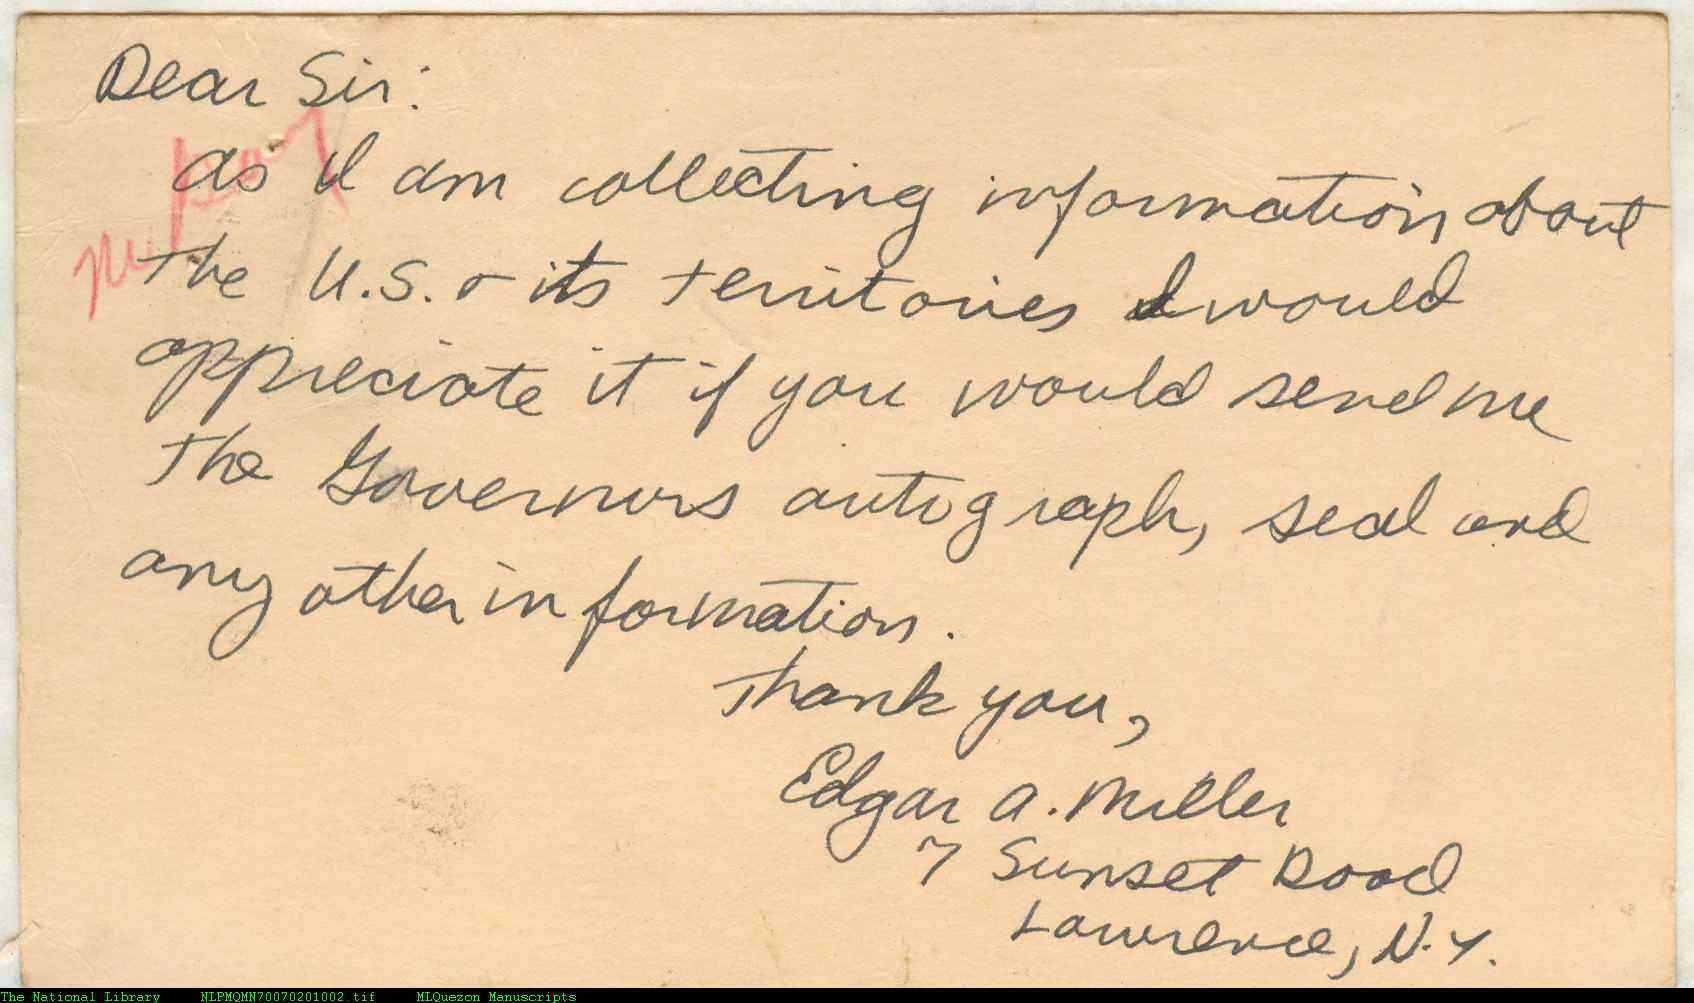 Dear Sir:
As I am collecting information about
the U.S. & its territories I would
appreciate it if you would send me
the Governors autograph, seal and
any other information.
Thank you,
Edgar A. Miller
7 Sunset Road
Lawrence, N.Y.
The National Library NLPMQMN70070201002.tif MLQuezon Manuscripts